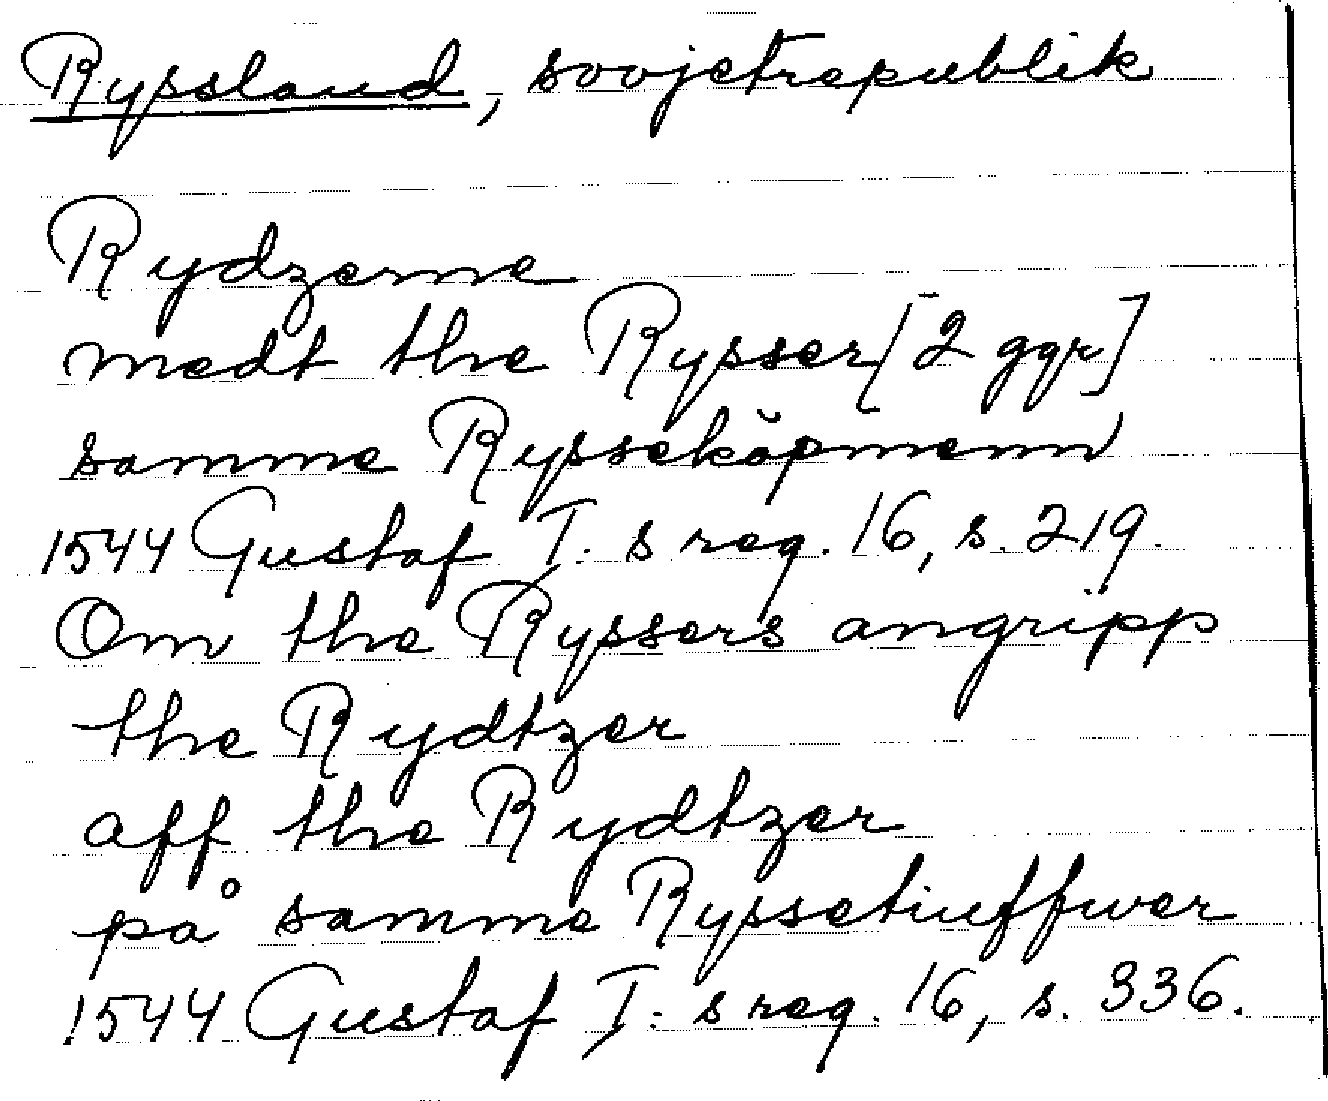 Ryssland, sovjetrepublik
Rydzerne
medt the Rysser [2 ggr]
samme Rysseköpmenn
1544 Gustaf I. s reg. 16, s. 219.
Om the Ryssers angripp
the Rydtzer
aff the Rydtzer
på sammeRyssetiuffwer
1544 Gustaf I. s reg. 16, s. 336.